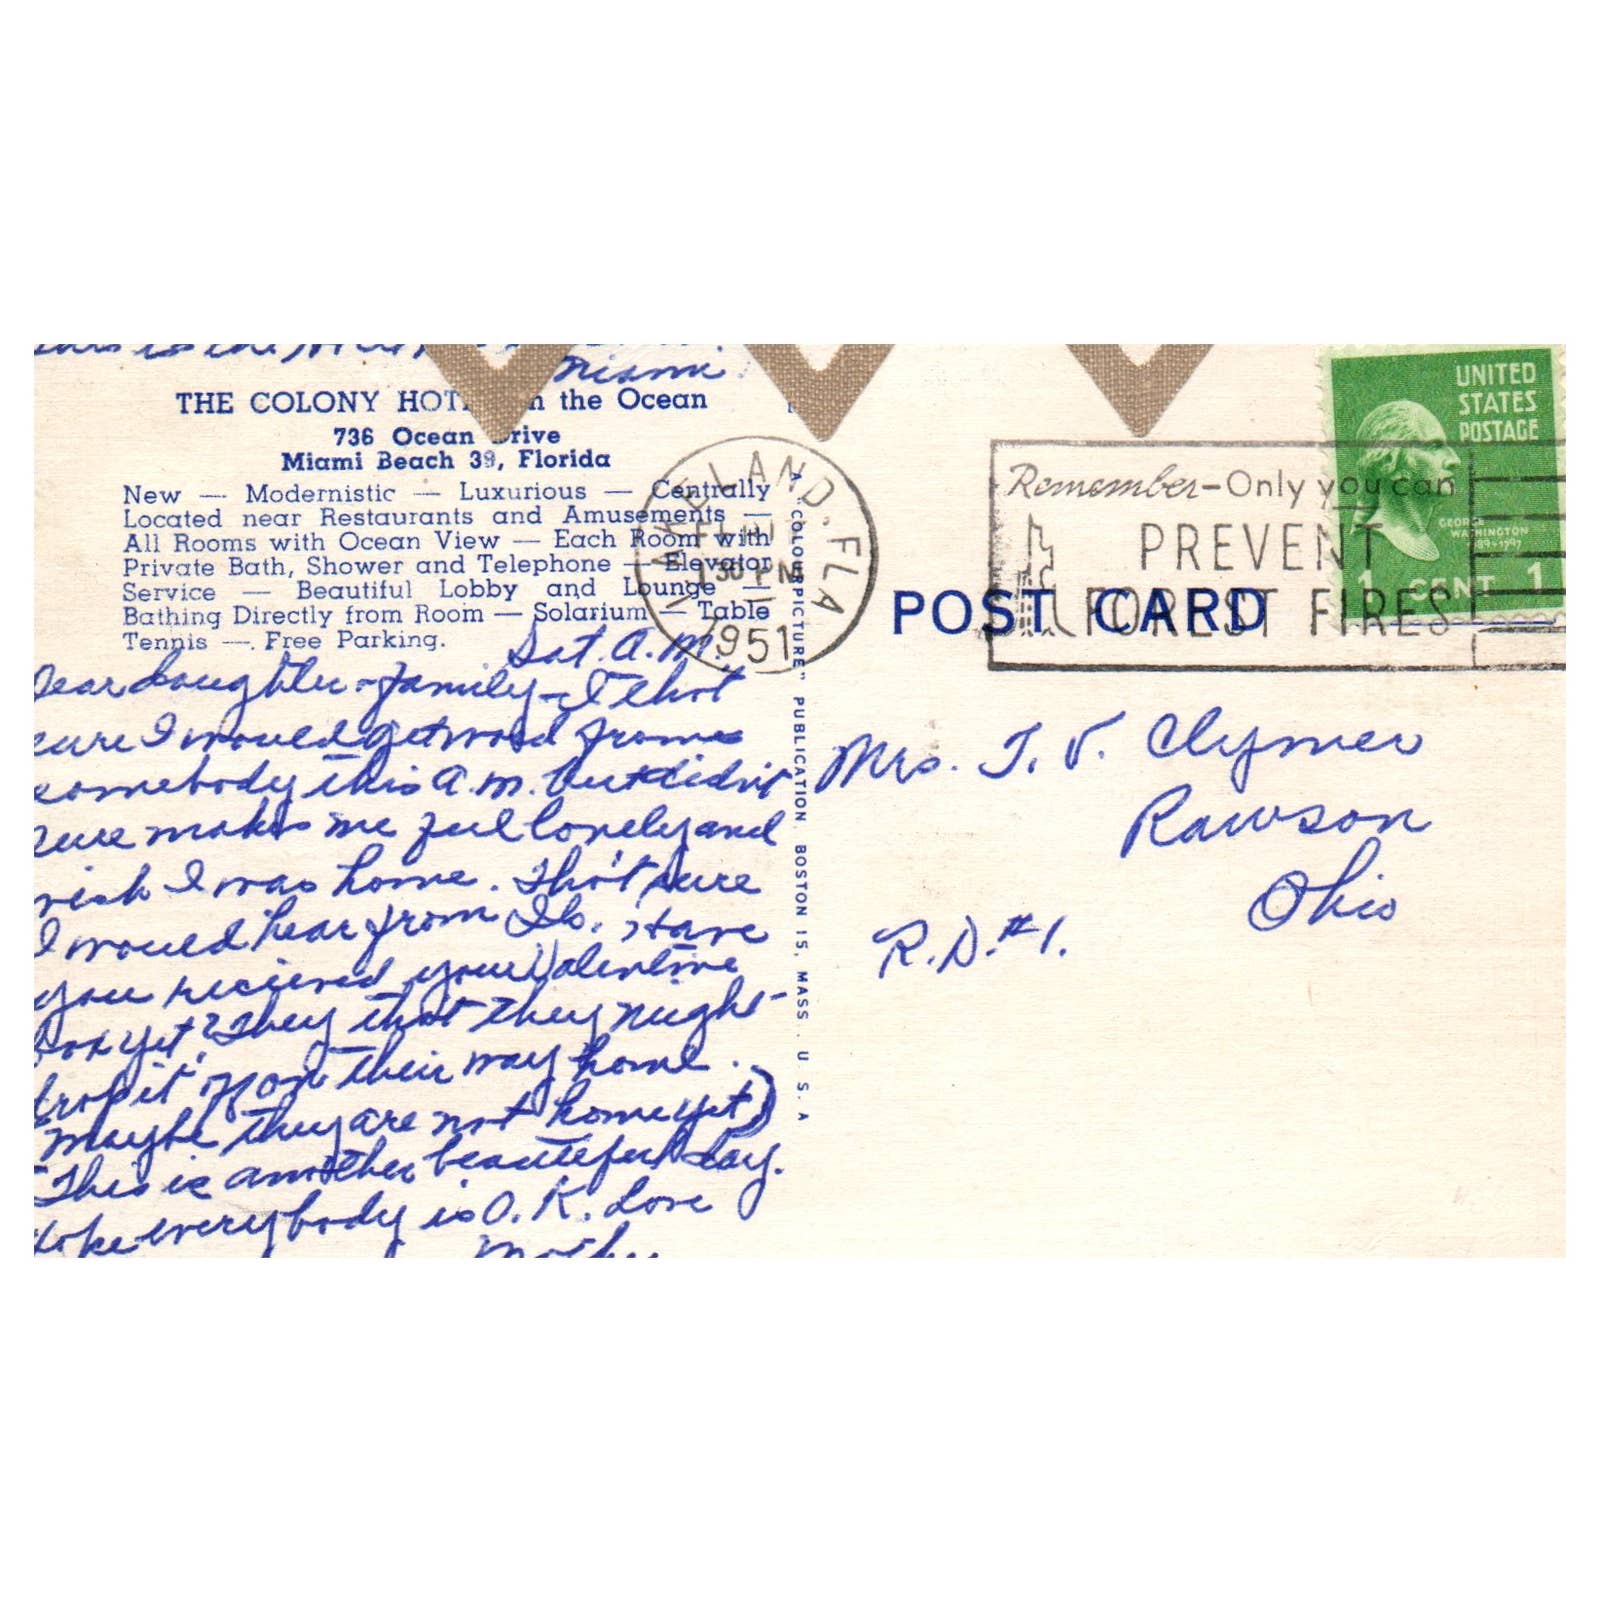 is the
Miami
THE COLONY the Ocean
736 Ocean Drive
Miami Beach 39, Florida
New — Modernistic — Luxurious — Centrally
Located near Restaurants and Amusements —
All Rooms with Ocean View — Each Room with
Private Bath, Shower and Telephone — Elevator
Service — Beautiful Lobby and Lounge —
Bathing Directly from Room — Solarium — Table
Tennis — Free Parking.
Sat. A.M.
Dear daughter & family - I thot
sure I would get word from
somebody this A.M. but didn't
sure makes me feel lonely and
wish I was home. Tho't sure
I would hear from Ib. Have
you recieved your Valentine
box yet? They thot they might
drop it off on their way home.
Maybe they are not home yet)
This is another beautiful day.
Hope everybody is O.K. Love
Mother
LAKELAND, FLA
1 30 PM
1951
A "COLOURPICTURE" PUBLICATION, BOSTON 15, MASS. U.S.A
Remember - Only you can
PREVENT
FOREST FIRES
UNITED
STATES
POSTAGE
GEORGE
WASHINGTON
1789-1797
1 CENT 1
POST CARD
Mrs. T. V. Clymer
Rawson
Ohio
R.D.#1.